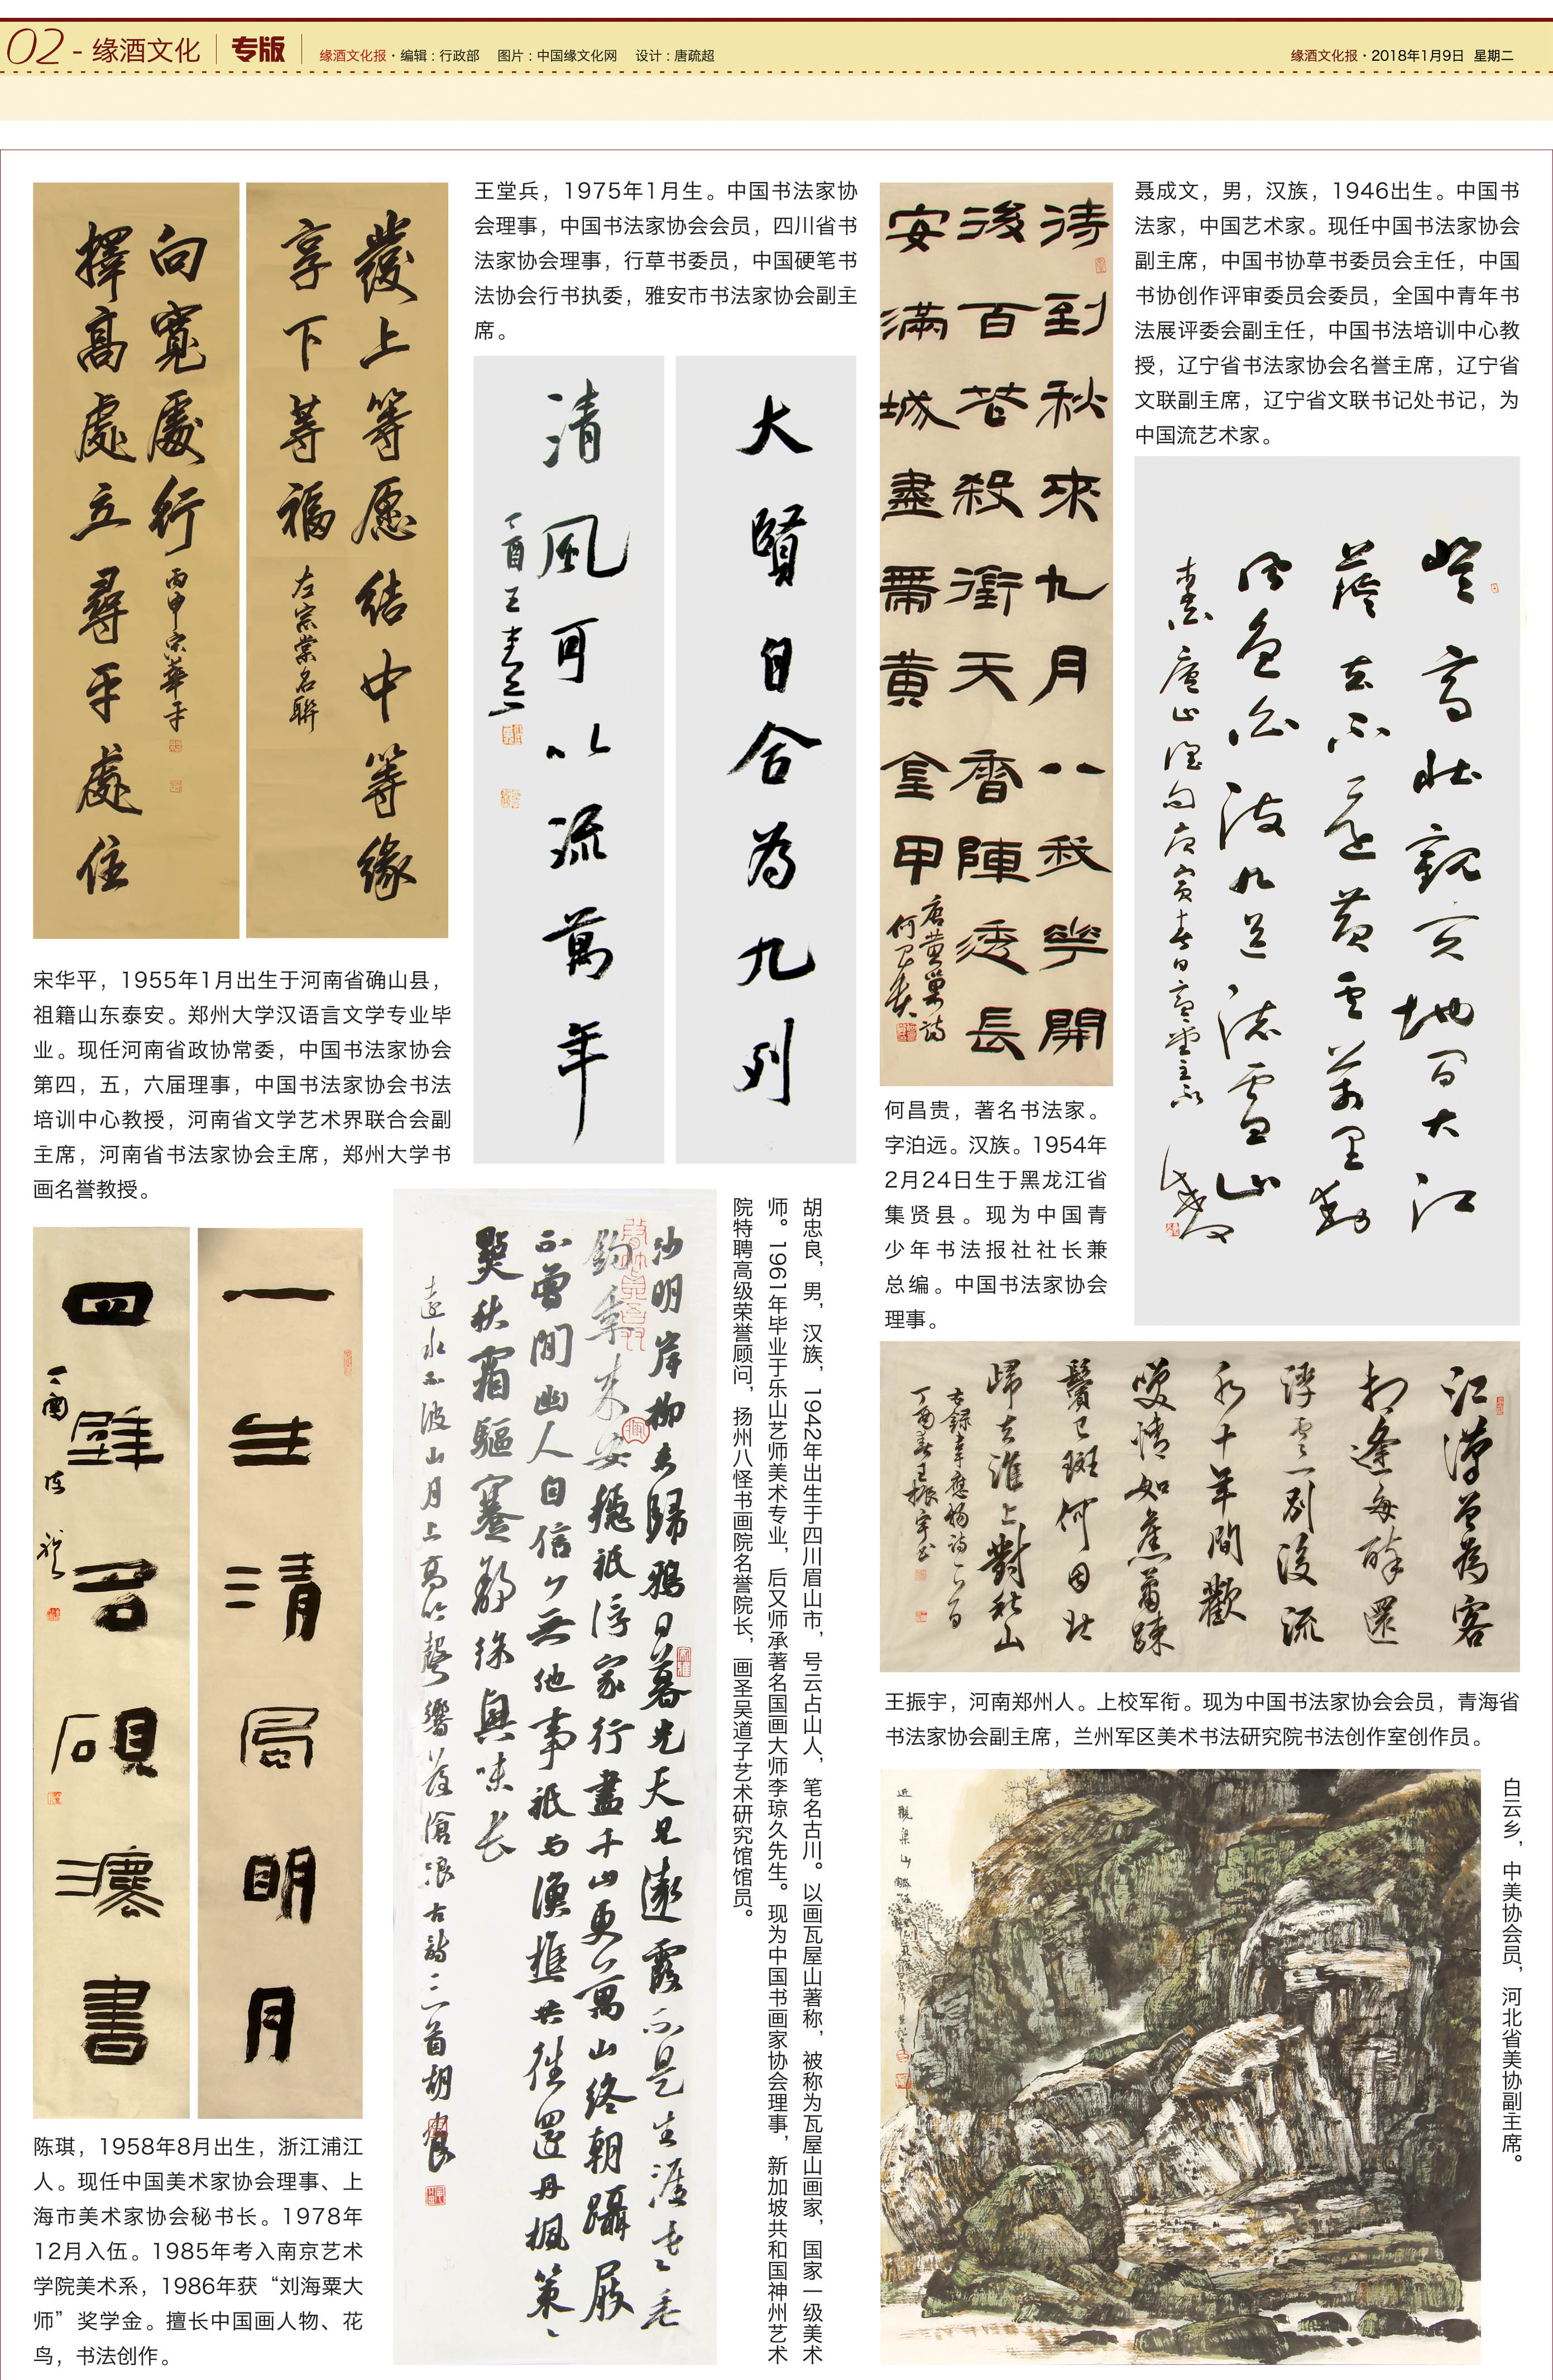 02 - 缘酒文化 专版 缘酒文化报·编辑：行政部 图片：中国缘文化网 设计：唐疏超
缘酒文化报·2018年1月9日 星期二
發上等愿结中等缘
享下等福
左宗棠名聯
向寬處行
擇高處立尋平處住
丙申宋華平
宋华平，1955年1月出生于河南省确山县，
祖籍山东泰安。郑州大学汉语言文学专业毕
业。现任河南省政协常委，中国书法家协会
第四，五，六届理事，中国书法家协会书法
培训中心教授，河南省文学艺术界联合会副
主席，河南省书法家协会主席，郑州大学书
画名誉教授。
王堂兵，1975年1月生。中国书法家协
会理事，中国书法家协会会员，四川省书
法家协会理事，行草书委员，中国硬笔书
法协会行书执委，雅安市书法家协会副主
席。
大賢自合為九列
清風可以流萬年
丁酉王堂兵
待到秋來九月八我花開
後百花殺衝天香陣透長
安滿城盡帶黄金甲
唐黄巢詩
何昌贵
何昌贵，著名书法家。
字泊远。汉族。1954年
2月24日生于黑龙江省
集贤县。现为中国青
少年书法报社社长兼
总编。中国书法家协会
理事。
聂成文，男，汉族，1946出生。中国书
法家，中国艺术家。现任中国书法家协会
副主席，中国书协草书委员会主任，中国
书协创作评审委员会委员，全国中青年书
法展评委会副主任，中国书法培训中心教
授，辽宁省书法家协会名誉主席，辽宁省
文联副主席，辽宁省文联书记处书记，为
中国流艺术家。
登高壮觀天地间大江
茫茫去不还黄雲萬里動
風色白波九道流雪山
一生清風明月
四壁名碩灋書
丁酉 陈琪
陈琪，1958年8月出生，浙江浦江
人。现任中国美术家协会理事、上
海市美术家协会秘书长。1978年
12月入伍。1985年考入南京艺术
学院美术系，1986年获“刘海粟大
师”奖学金。擅长中国画人物、花
鸟，书法创作。
胡忠良，男，汉族，1942年出生于四川眉山市，号云占山人，笔名古川。以画瓦屋山著称，被称为瓦屋山画家，国家一级美术
师。1961年毕业于乐山艺师美术专业，后又师承著名国画大师李琼久先生。现为中国书画家协会理事，新加坡共和国神州艺术
院特聘高级荣誉顾问，扬州八怪书画院名誉院长，画圣吴道子艺术研究馆馆员。
江漢曾為客
相逢每醉還
浮雲一別後流
水十年間歡
笑情如舊蕭疎
鬢已斑何因北
歸去淮上對秋山
右録韋應物詩一首
丁酉春王振宇书
王振宇，河南郑州人。上校军衔。现为中国书法家协会会员，青海省
书法家协会副主席，兰州军区美术书法研究院书法创作室创作员。
白云乡，中美协会员，河北省美协副主席。